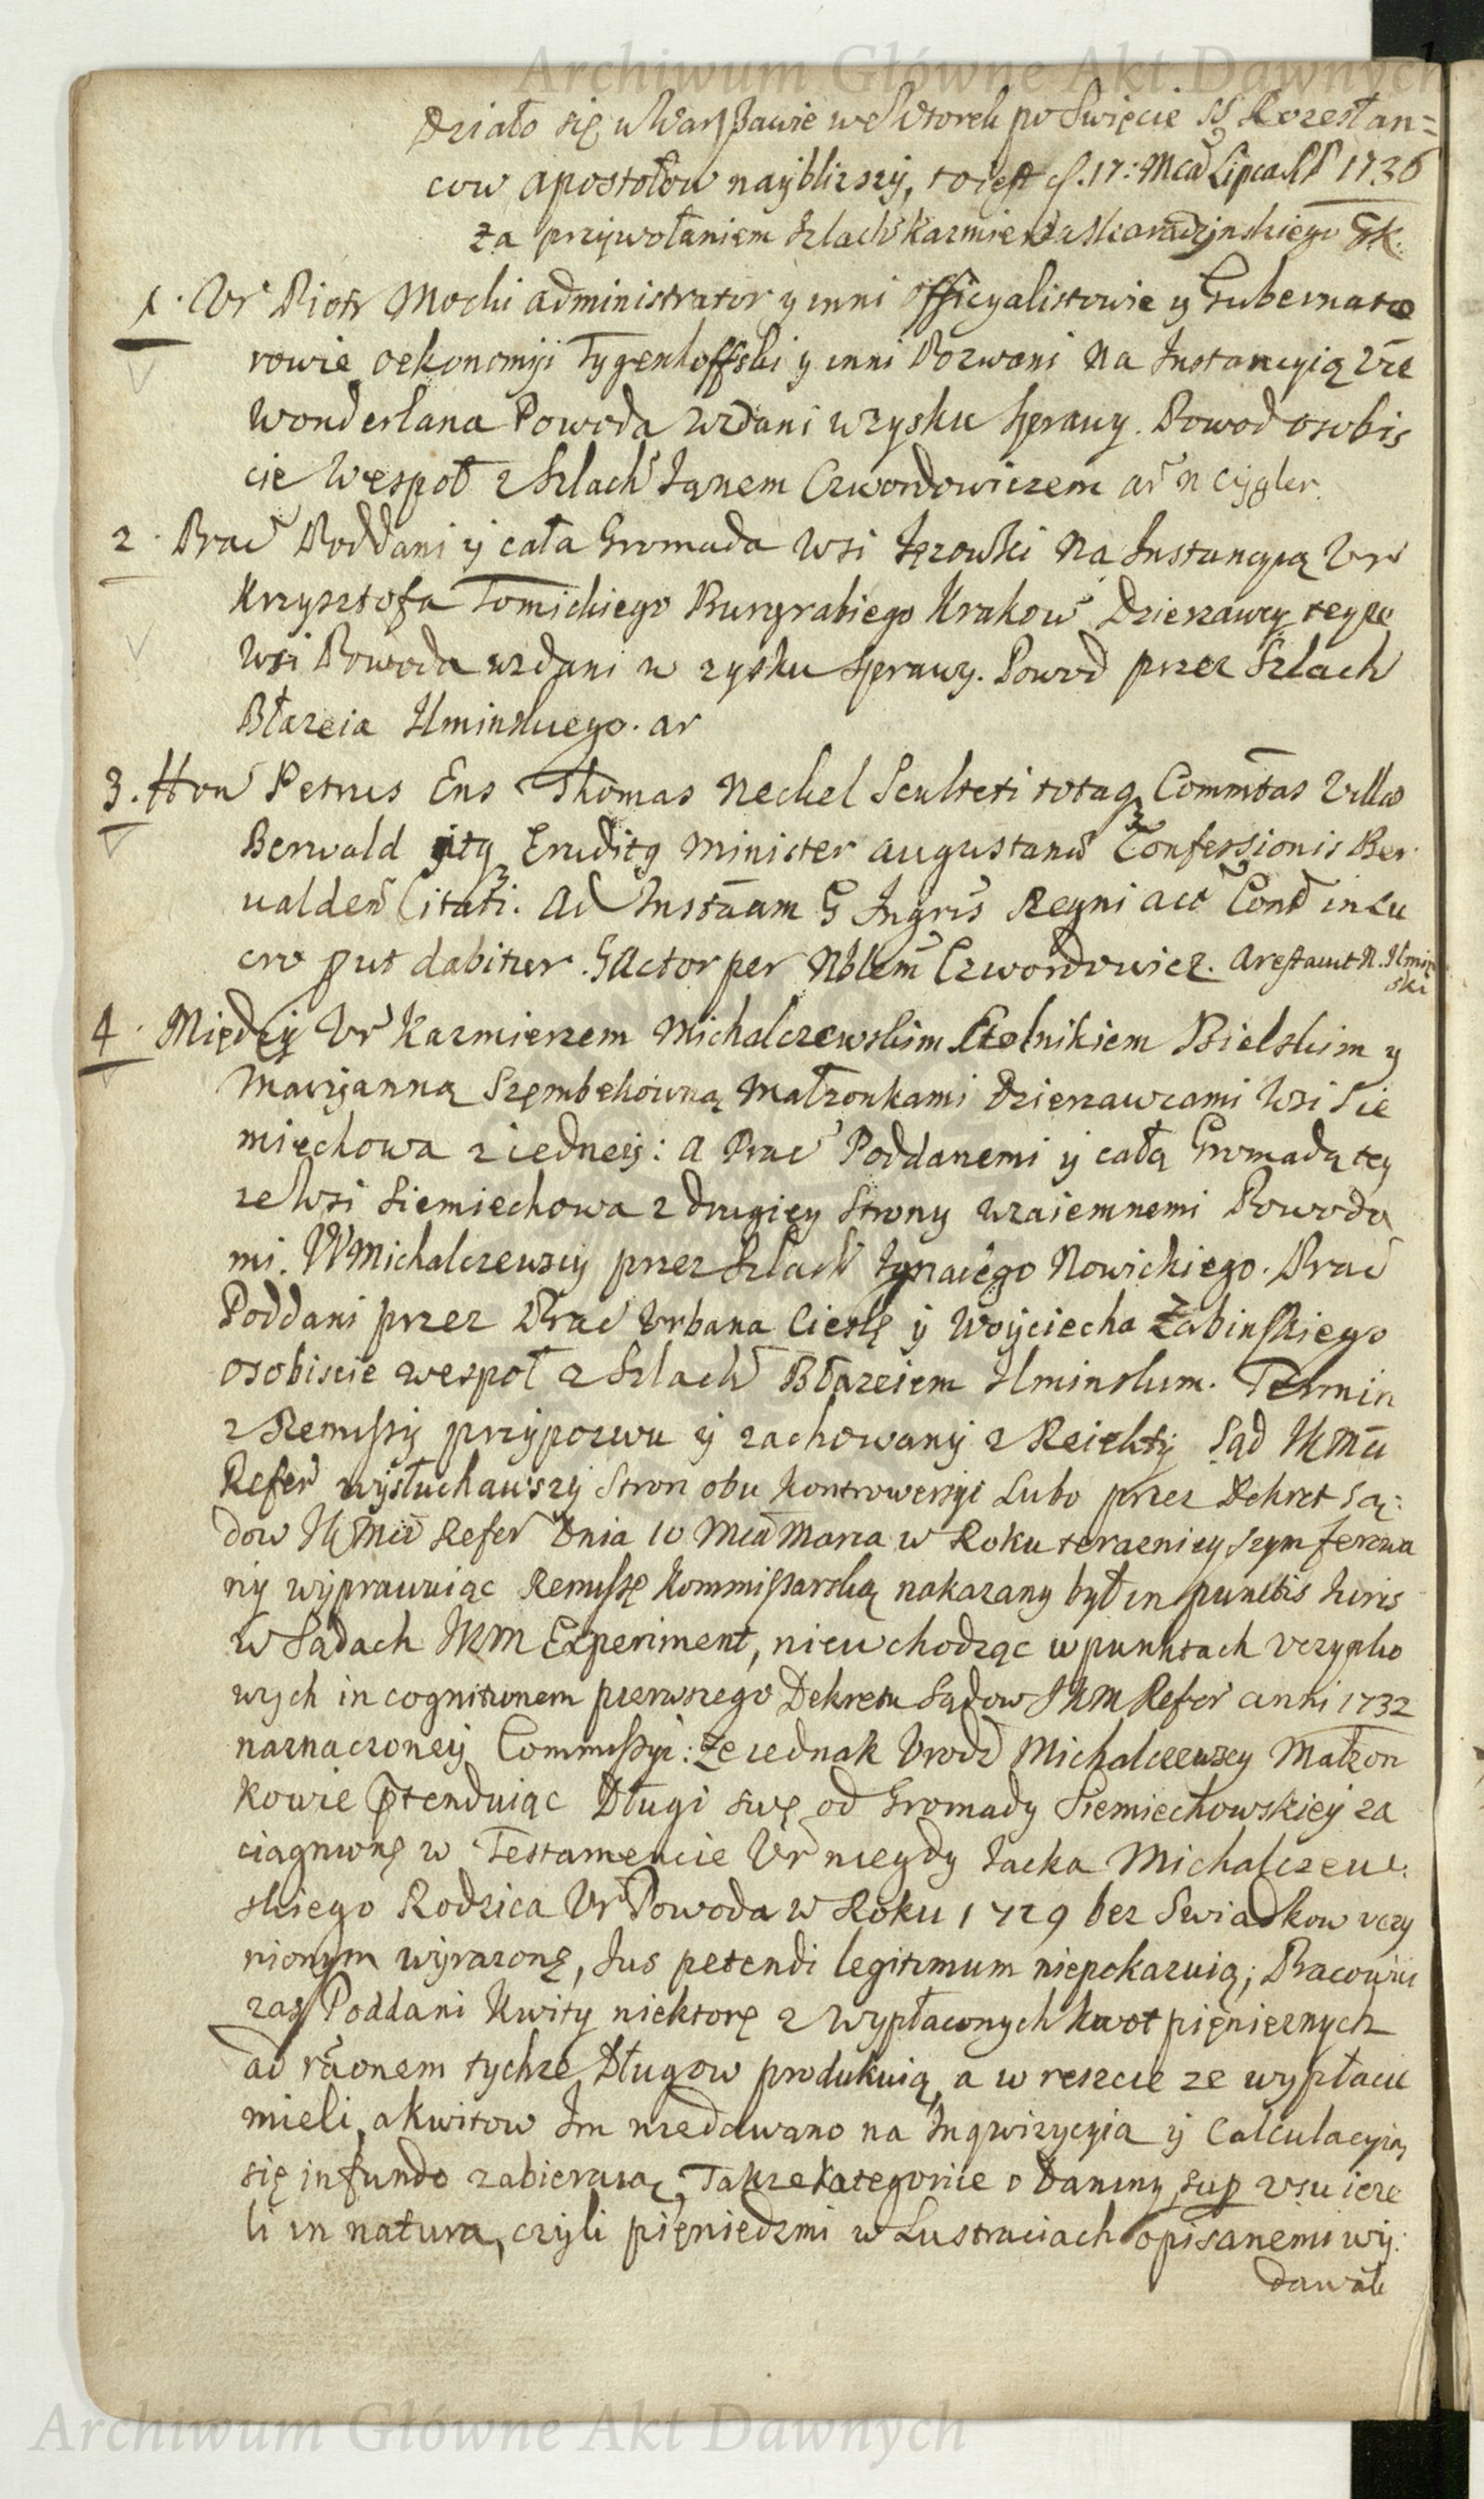 Archiwum Główne Akt Dawnych
Działo się w Warszawie we Wtorek po Swięcie SS Rozesłan=
cow Apostołow nayblizszy, to iest d. 17: Mca Lipca 1736
za przywołaniem Szlach Kazmierza
1. Ur Piotr Mochi administrator y inni officyalistowie y Gubernato
rowie oekonomiji Tygenhoffski y inni Pozwani Na Instancyią Ur
Wonderlana Powoda wzdani w zysku sprawy. Powod osobis
cie Wespoł z Szlach Janem Czwordowiczem ar n Cygler
2. Prac Poddani ÿ cała Gromada wsi Jezowski Na Instancyią Ur
Krzysztofa Tomickiego Burgrabiego Krakow Dzierzawcy teyze
Wsi Powoda wzdani w zysku sprawy. Powod przez Szlach
Błazeia Ilminskiego. ar
3. Hon Petrus Ens Thomas Neckel Sculteti totaq Commtas Villæ
Berwald itq Eruditq Minister augustanæ Confessionis Ber
ualden Citati. Ad Instāam G Ingris Regni act Cond in lu
cro put dabitur. G Actor per Nblem Czwordowicz. Arestavit N. Ilmin
ski
4. Między Ur Kazmierzem Michalczewskim Stolnikiem Bielskim y
Maryanną Szembekowną Małzonkami Dzierzawcami Wsi Sie
miechowa z iedneÿ: A Prac Poddanemi ÿ całą Gromadą tey
ze Wsi Siemiechowa z drugiey Strony wzaiemnemi Powoda
mi. UMichalczewscy przez Szlach Ignacego Nowickiego. Prac
Poddani przez Prac Urbana Cieslę ÿ Woyciecha Żabinskiego
osobiscie wespoł z Szlach Błazeiem Ilminskim. Termin
z Remissÿ przypozwu ÿ zachowany z Reiekty Sąd JKMci
Refer wysłuchawszÿ Stron obu kontrowersyi Lubo przez Dekret Są:
dow JKMci Refer Dnia 10 Mca Marca w Roku teraznieyszym ferowa
nÿ wyprawuiąc Remissę Kommissarską nakazany był in punctis Juris
w Sądach JKM Experiment, nie wchodząc w punktach uczynko
wych in cognitionem pierwszego Dekretu Sądow JKM Refer anni 1732
naznaczoneÿ Commissyi: Ze iednak Urodz Michalczewscy Małzon
kowie ptenduiąc Długi swę od Gromady Siemiechowskieÿ za
ciągnionę w Testamencie Ur niegdy Jacka Michalczew:
skiego Rodzica Ur Powoda w Roku 1729 bez Swiadkow uczy
nionym wyrazonę, Jus petendi legitimum niepokazuią; Pracowici
zas Poddani Kwity niektorę z wypłaconych kwot pięnięznych
ad rãonem tychze Długow produkuią, a w reszcie ze wypłacic
mieli, a kwitow Im niedawano na Inqwizycyia ÿ Calculacyią
się in fundo zabieraią, Takze Kategorice o Daniny, sup
li in natura, czyli pięniedzmi w Lustraciach opisanemi wy:
dawali
Archiwum Główne Akt Dawnych